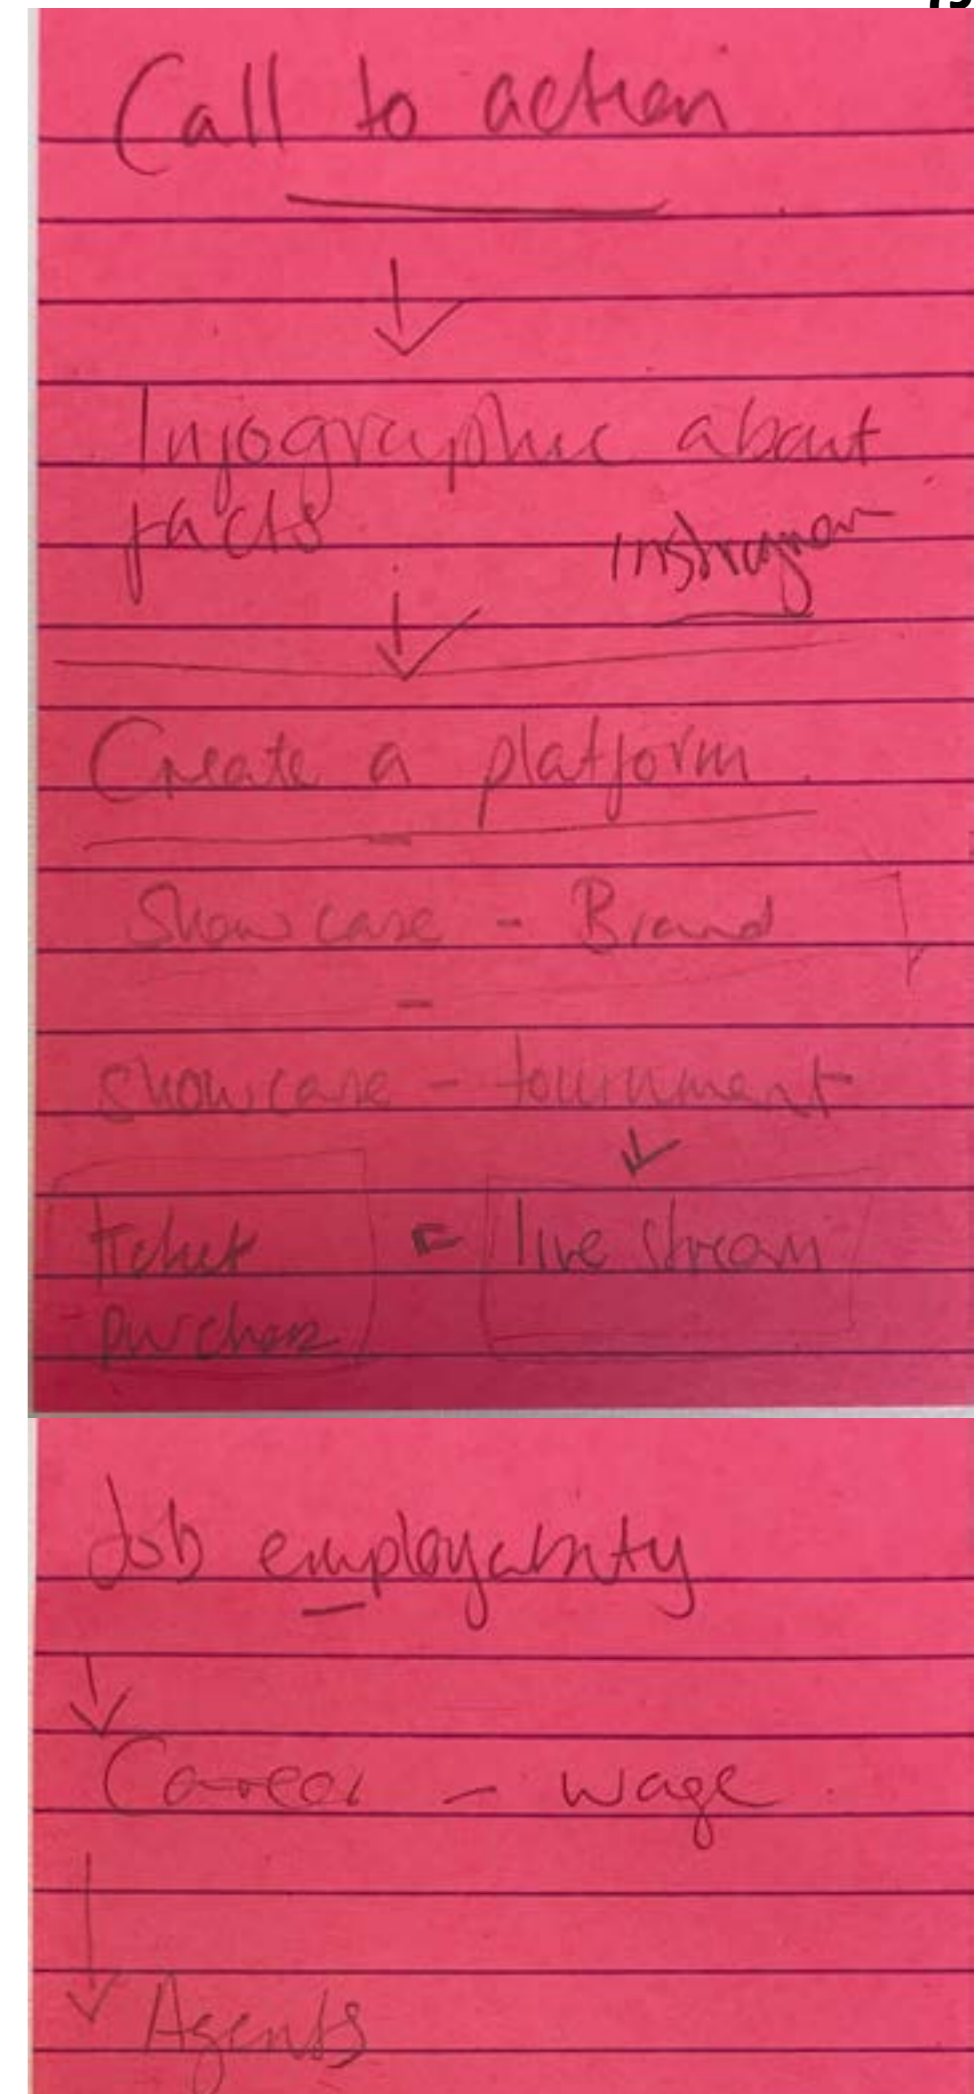 Call to action
↓
Infographic about
facts
Instragram
↓
Create a platform.
Showcase - Brand
showcase - tournment
↓
ticket ← live stream
purchase
Job employability
↓
Career - wage
↓
Agents